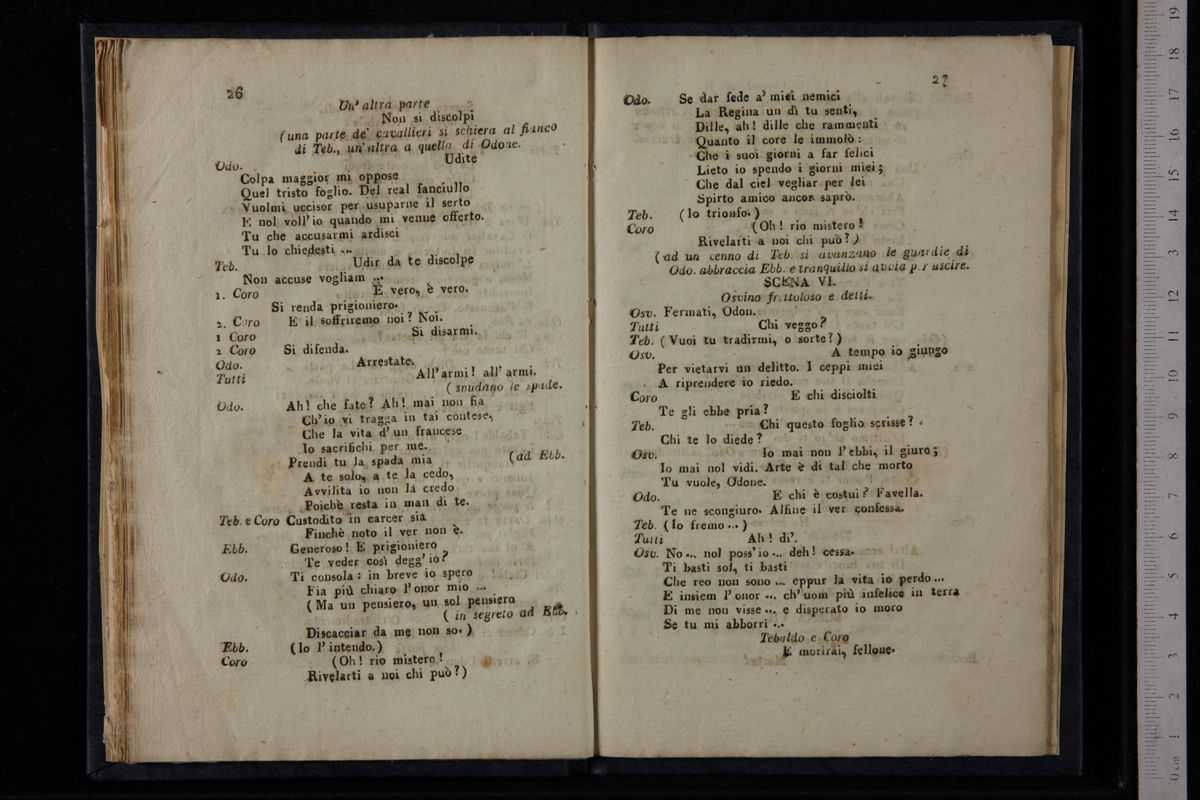 26
Un' altra parte
Non si discolpi
(una parte de' cavallieri si schiera al fianco
di Teb., un' altra a quello di Odone.
Odo. Udite
Colpa maggior mi oppose
Quel tristo foglio. Del real fanciullo
Vuolmi uccisor per usuparne il serto
E nol voll' io quando mi venne offerto.
Tu che accusarmi ardisci
Tu lo chiedesti ...
Teb. Udir da te discolpe
Non accuse vogliam ...
1. Coro E vero, è vero.
Si renda prigioniero.
2. Coro E il soffriremo noi? Noi.
1 Coro Si disarmi.
2 Coro Si difenda.
Odo. Arrestate.
Tutti All' armi! all' armi.
(snudano le spade.
Odo. Ah! che fate? Ah! mai non fia
Ch' io vi tragga in tai contese,
Che la vita d' un francese
Io sacrifichi per me.
Prendi tu la spada mia (ad Ebb.
A te solo, a te la cedo,
Avvilita io non la credo
Poichè resta in man di te.
Teb. e Coro Custodito in carcer sia
Finchè noto il ver non è.
Ebb. Generoso! E prigioniero
Te veder così degg' io?
Odo. Ti consola: in breve io spero
Fia più chiaro l' onor mio ...
(Ma un pensiero, un sol pensiero
(in segreto ad Ebb.
Discacciar da me non so.)
Ebb. (Io l' intendo.)
Coro (Oh! rio mistero!
Rivelarti a noi chi può?)
27
Odo. Se dar fede a' miei nemici
La Regina un dì tu senti,
Dille, ah! dille che rammenti
Quanto il core le immolò:
Che i suoi giorni a far felici
Lieto io spendo i giorni miei;
Che dal ciel vegliar per lei
Spirto amico ancor saprò.
Teb. (Io trionfo.)
Coro (Oh! rio mistero!
Rivelarti a noi chi può?)
(ad un cenno di Teb. si avanzano le guardie di
Odo. abbraccia Ebb. e tranquillo si avvia per uscire.
SCENA VI.
Osvino frettoloso e detti.
Osv. Fermati, Odon.
Tutti Chi veggo?
Teb. (Vuoi tu tradirmi, o sorte?)
Osv. A tempo io giungo
Per vietarvi un delitto. I ceppi miei
A riprendere io riedo.
Coro E chi disciolti
Te gli ebbe pria?
Teb. Chi questo foglio scrisse?
Chi te lo diede?
Osv. Io mai non l' ebbi, il giuro;
Io mai nol vidi. Arte è di tal che morto
Tu vuole, Odone.
Odo. E chi è costui? Favella.
Te ne scongiuro. Alfine il ver confessa.
Teb. (Io fremo ...)
Tutti Ah! di'.
Osv. No ... nol poss' io ... deh! cessa.
Ti basti sol, ti basti
Che reo non sono ... eppur la vita io perdo ...
E insiem l' onor ... ch' uom più infelice in terra
Di me non visse ... e disperato io moro
Se tu mi abborri ...
Tebaldo e Coro
E morirai, fellone.